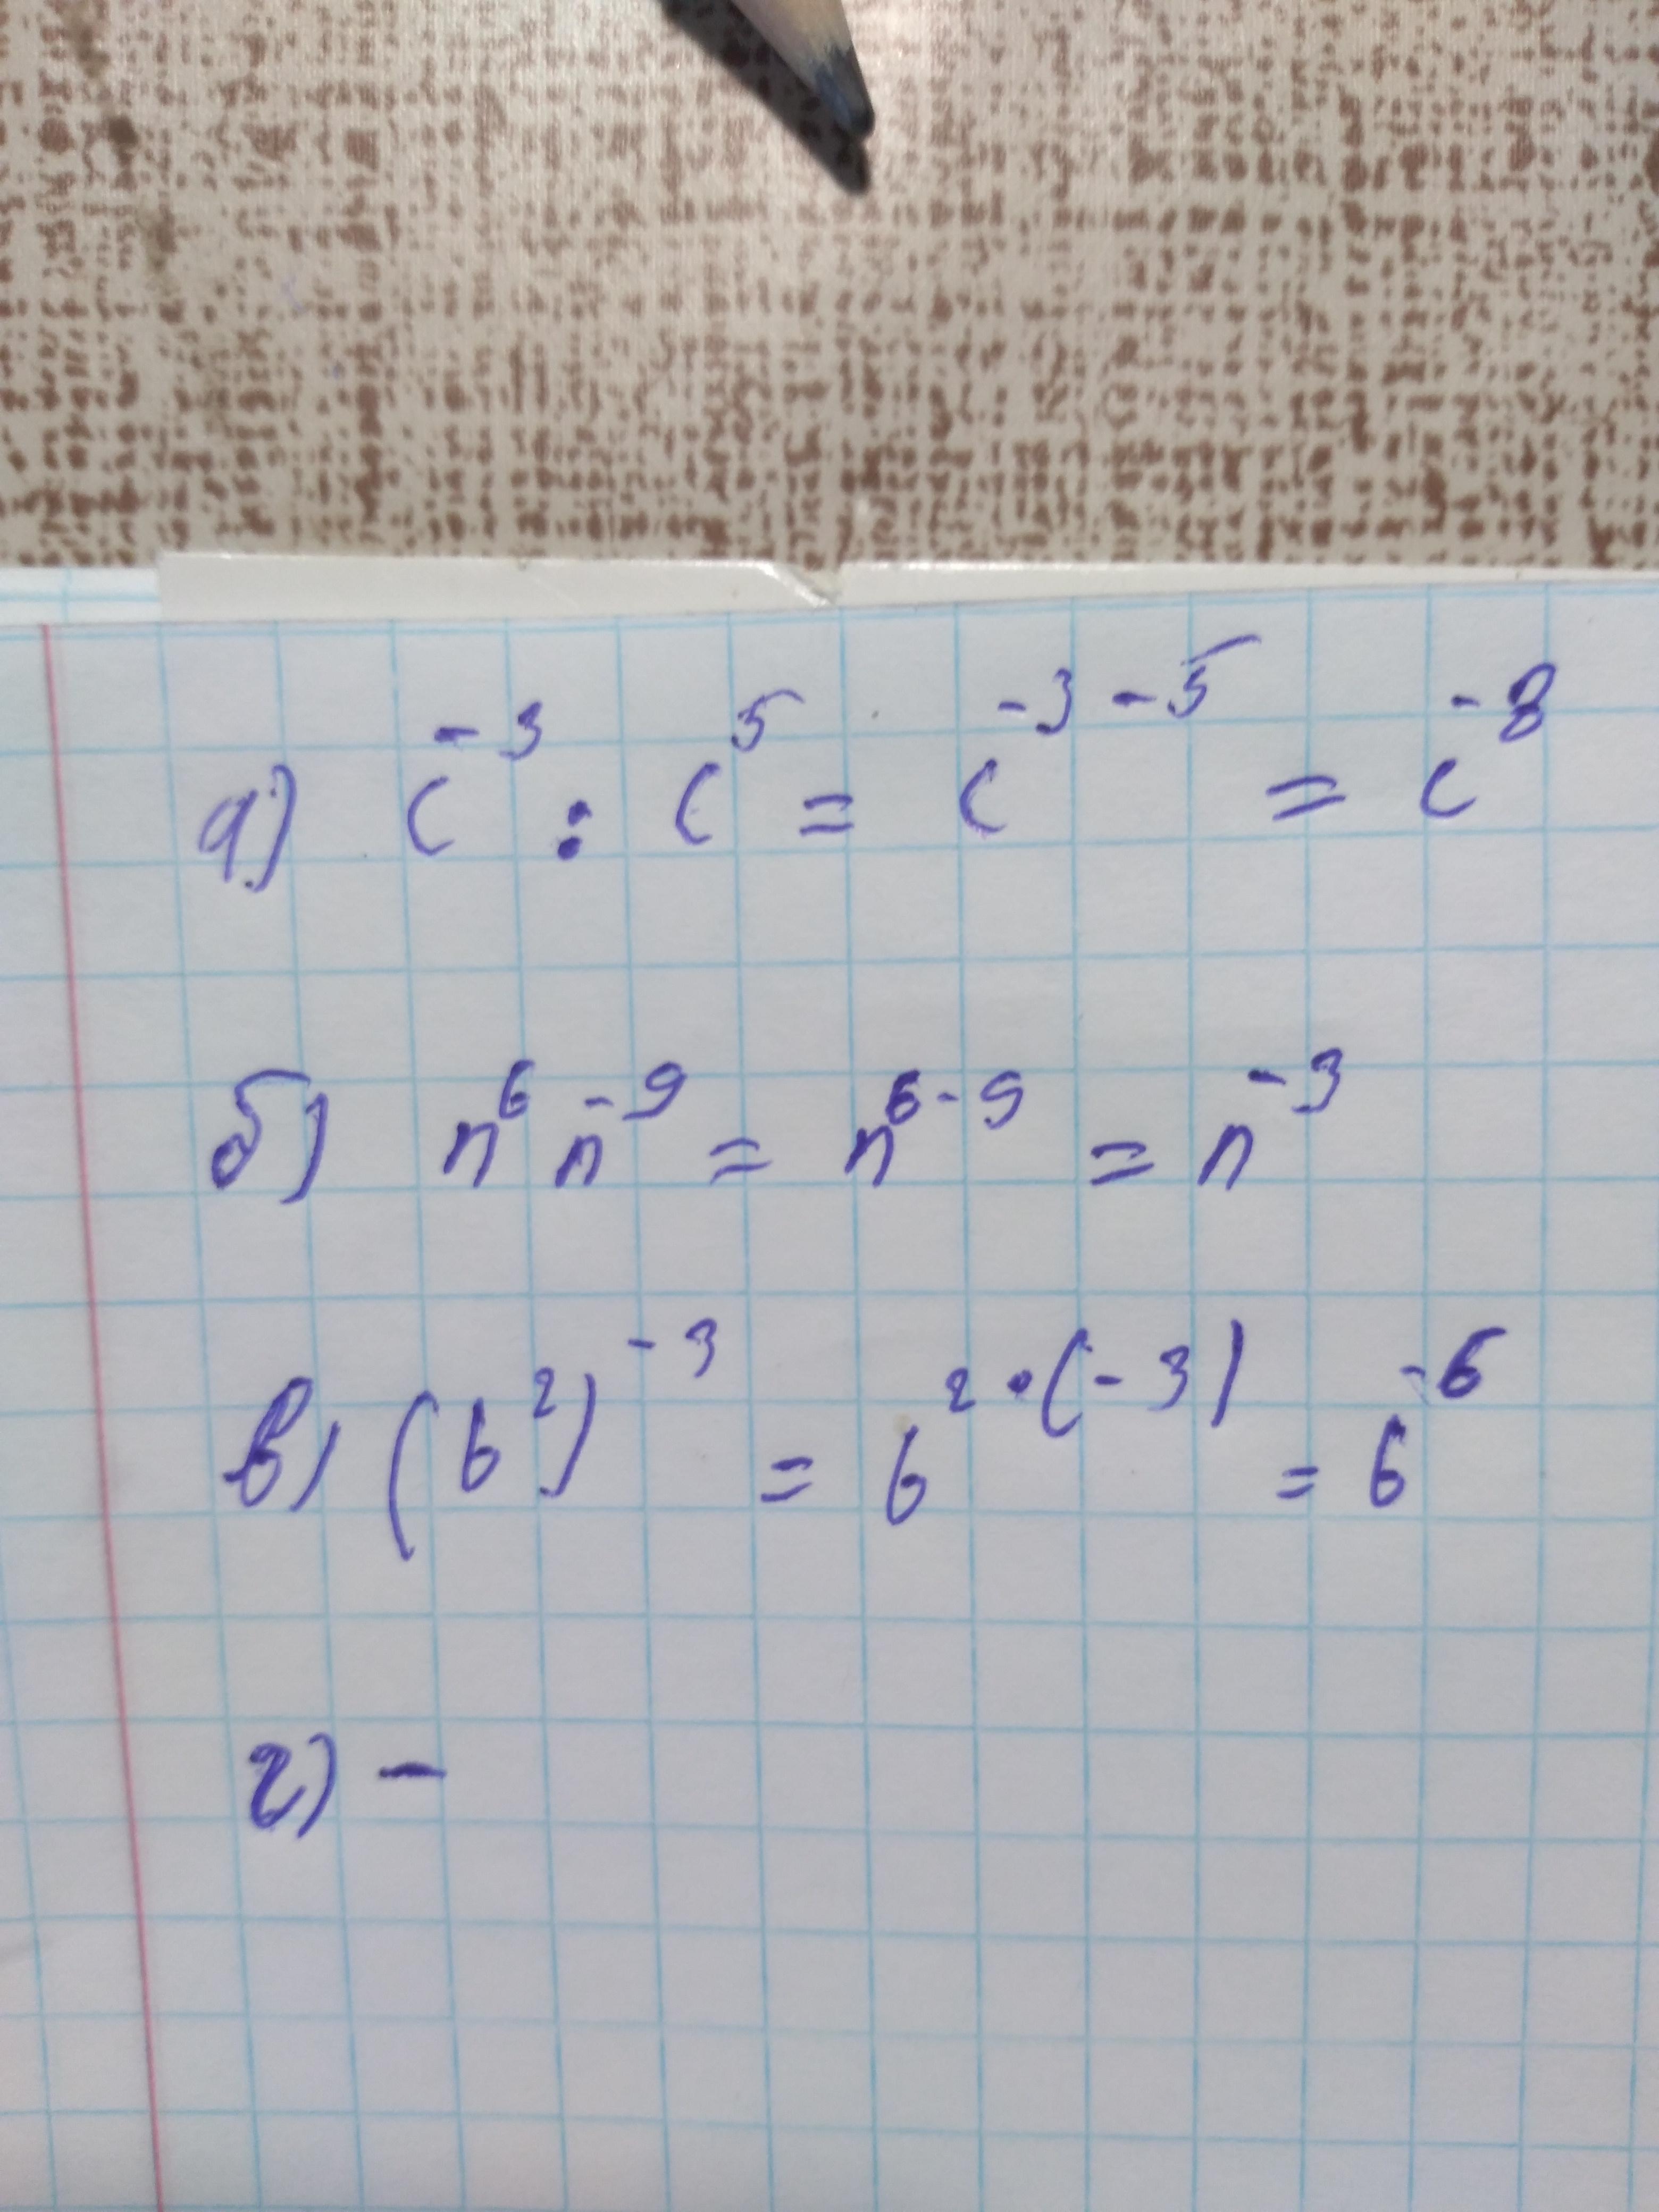 а) c⁻³ : c⁵ = c⁻³⁻⁵ = c⁻⁸
б) n⁶ n⁻⁹ = n⁶⁻⁹ = n⁻³
в) (b²)⁻³ = b²˙⁽⁻³⁾ = b⁻⁶
г) –